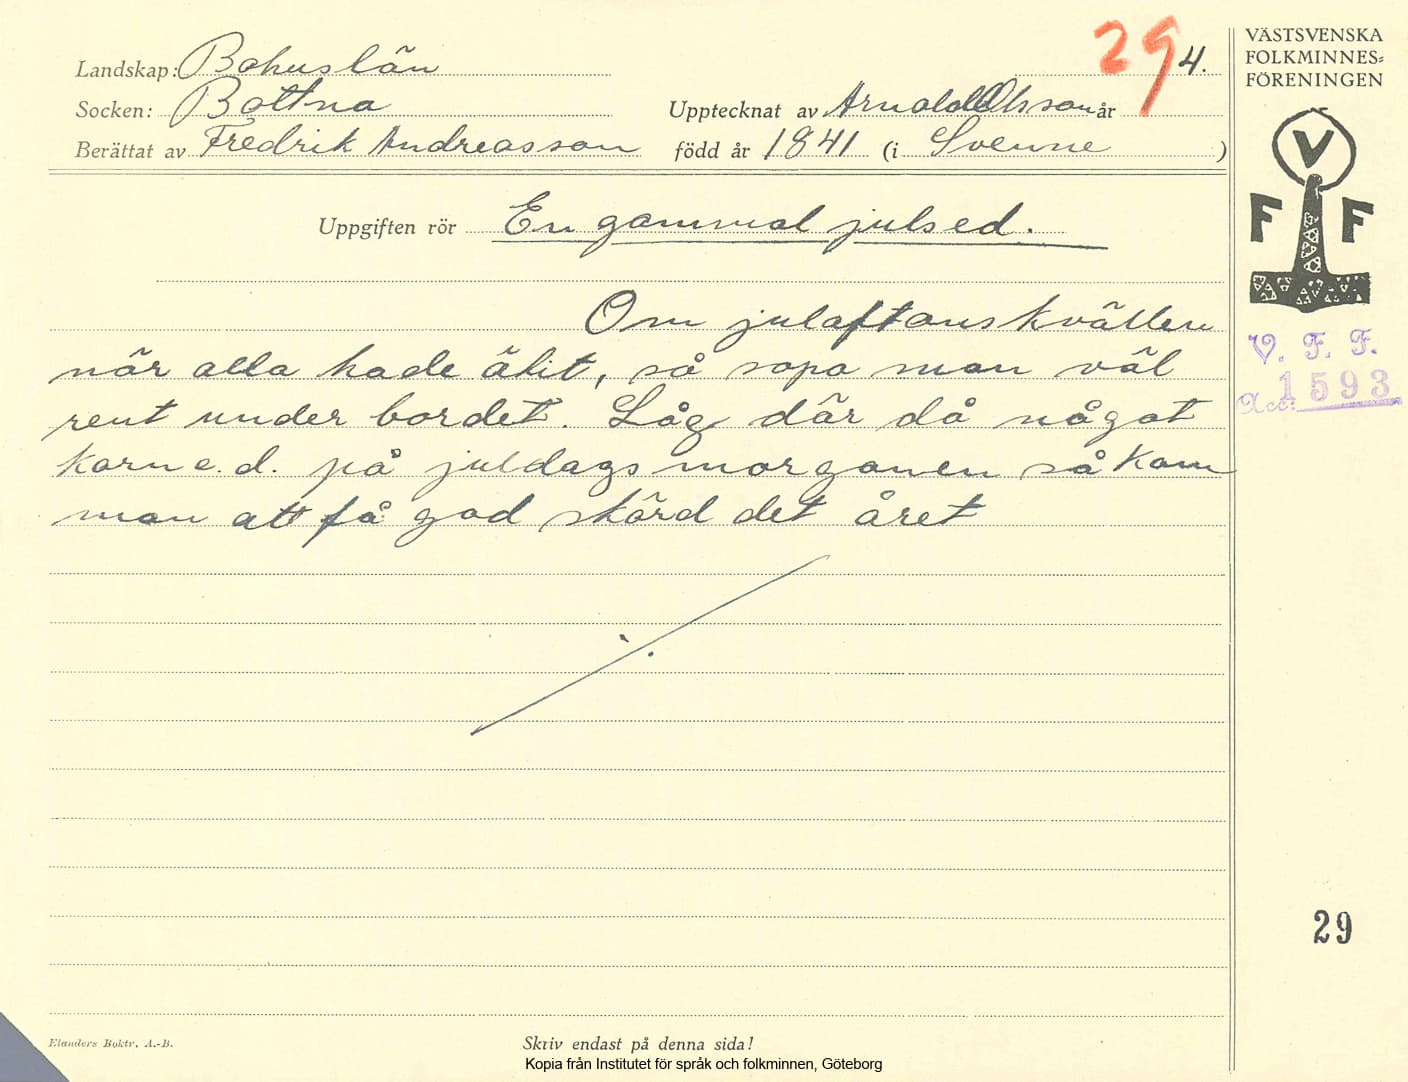 29 4.
VÄSTSVENSKA
FOLKMINNES=
FÖRENINGEN
Landskap: Bohuslän
Socken: Bottna Upptecknat av Arnold Olsson år
Berättat av Fredrik Andreasson född år 1841 (i Svenne)
V
F F
Uppgiften rör En gammal julsed.
Om julaftonskvällen
när alla hade ätit, så sopa man väl
rent under bordet. Låg där då något
korn e.d. på juldagsmorgonen så kom
man att få god skörd det året
V. F. F.
Acc: 1593
29
Elanders Boktr. A.-B.
Skriv endast på denna sida!
Kopia från Institutet för språk och folkminnen, Göteborg